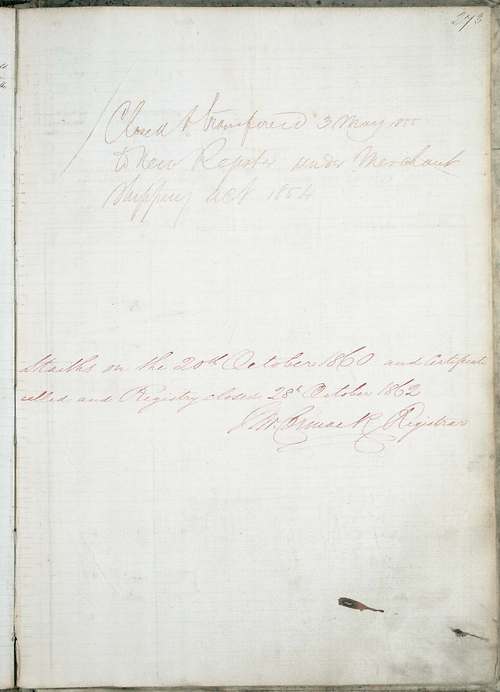 273
Closed & transfered 3 May 55
to New Register under Merchant
Shipping Act 1854
Staiths on the 20th October 1860 and Certificate
celled and Registry closed 28th October 1862
Registrar